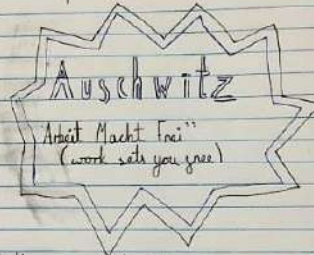 Auschwitz
Arbeit Macht Frei"
(work sets you free)